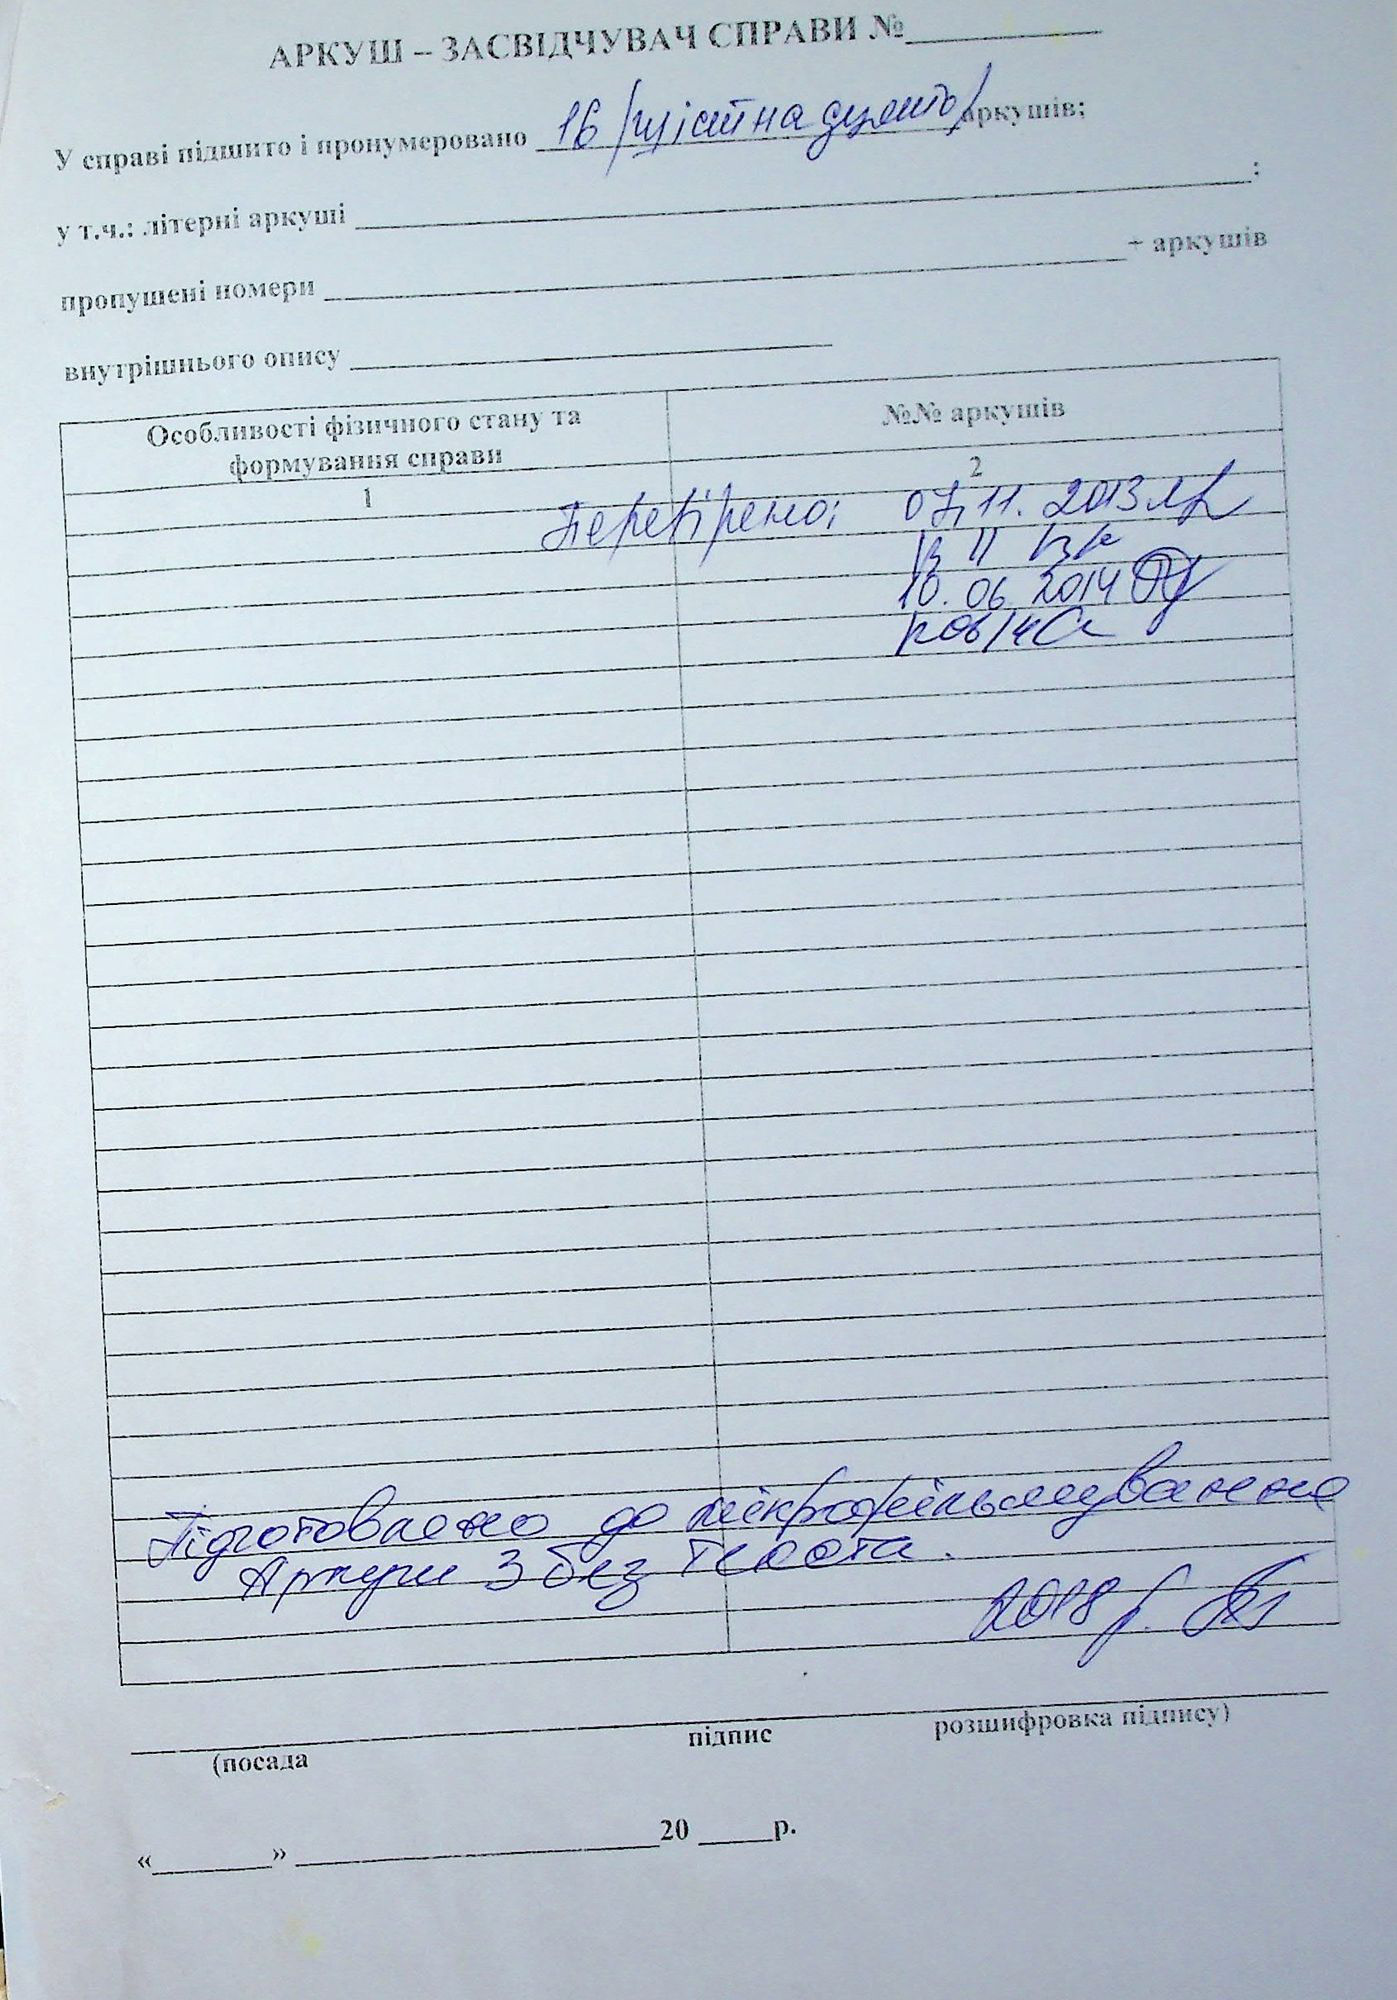 АРКУШ – ЗАСВІДЧУВАЧ СПРАВИ №__________
У справі підшито і пронумеровано 16 /шістнадцять/ аркушів;
у т.ч.: літерні аркуші ______________________________;
пропущені номери ______________________________+ аркушів
внутрішнього опису ____________________
Особливості фізичного стану та формування справи
№№ аркушів
1
2
Перевірено: 07.11.2013
10.06.2014
Підготовлено до мікрофільмування
Аркуш 3 без текста.
2018 р.
(посада підпис розшифровка підпису)
«________» ____________________20 _____р.